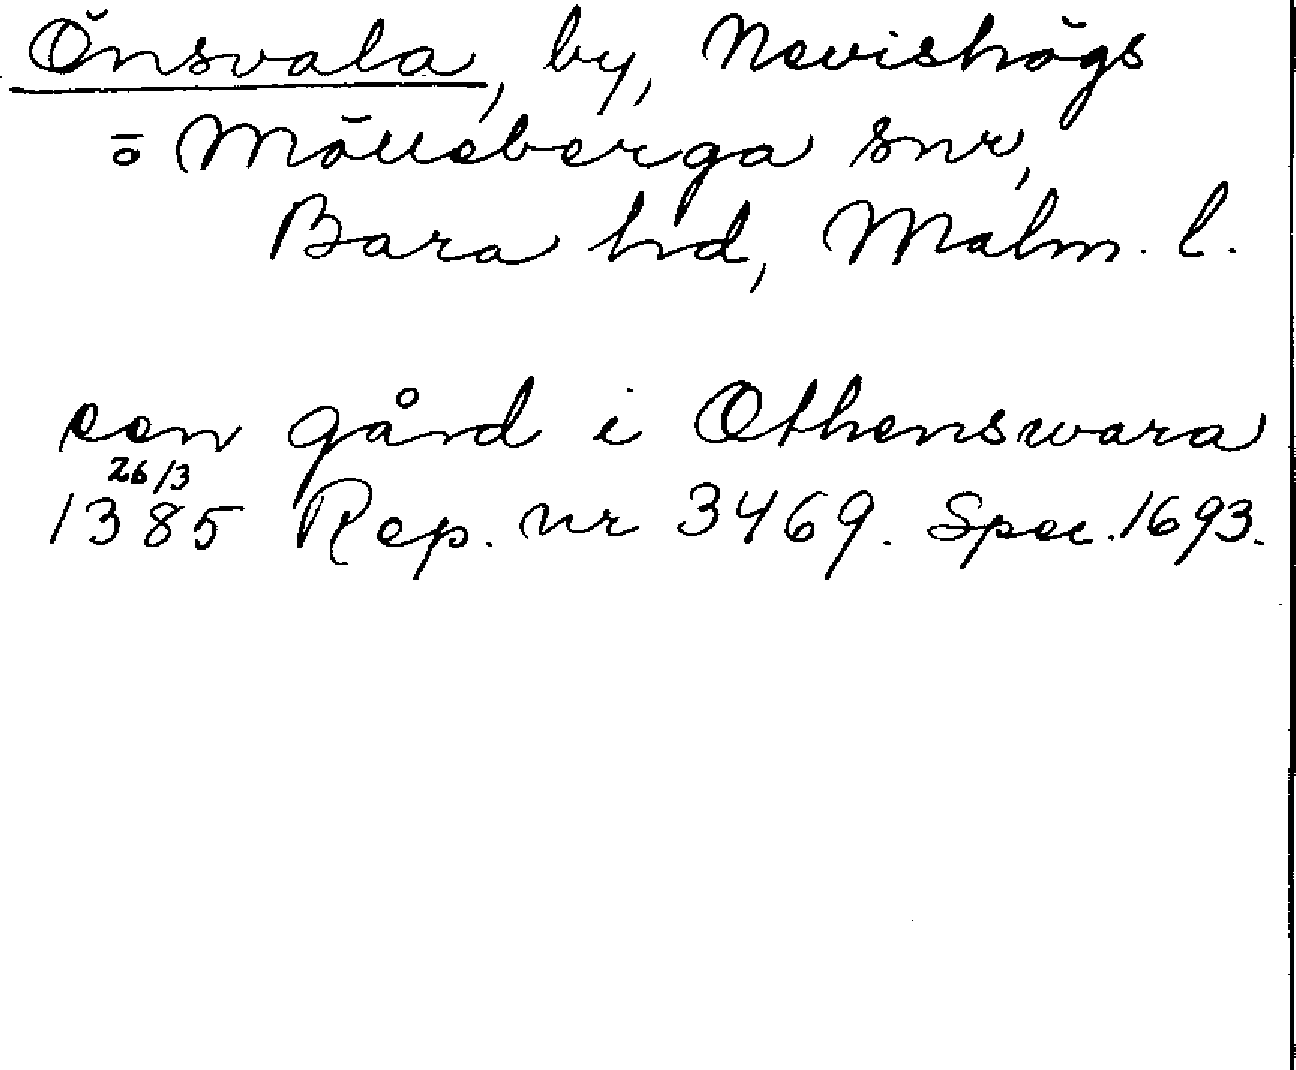 Önsvala, by, Nevishögs
o Mölleberga snr,
Bara hd, Malm. l.
een gård i Othenswara
26/3
1385 Rep. nr 3469. Spec. 1693.